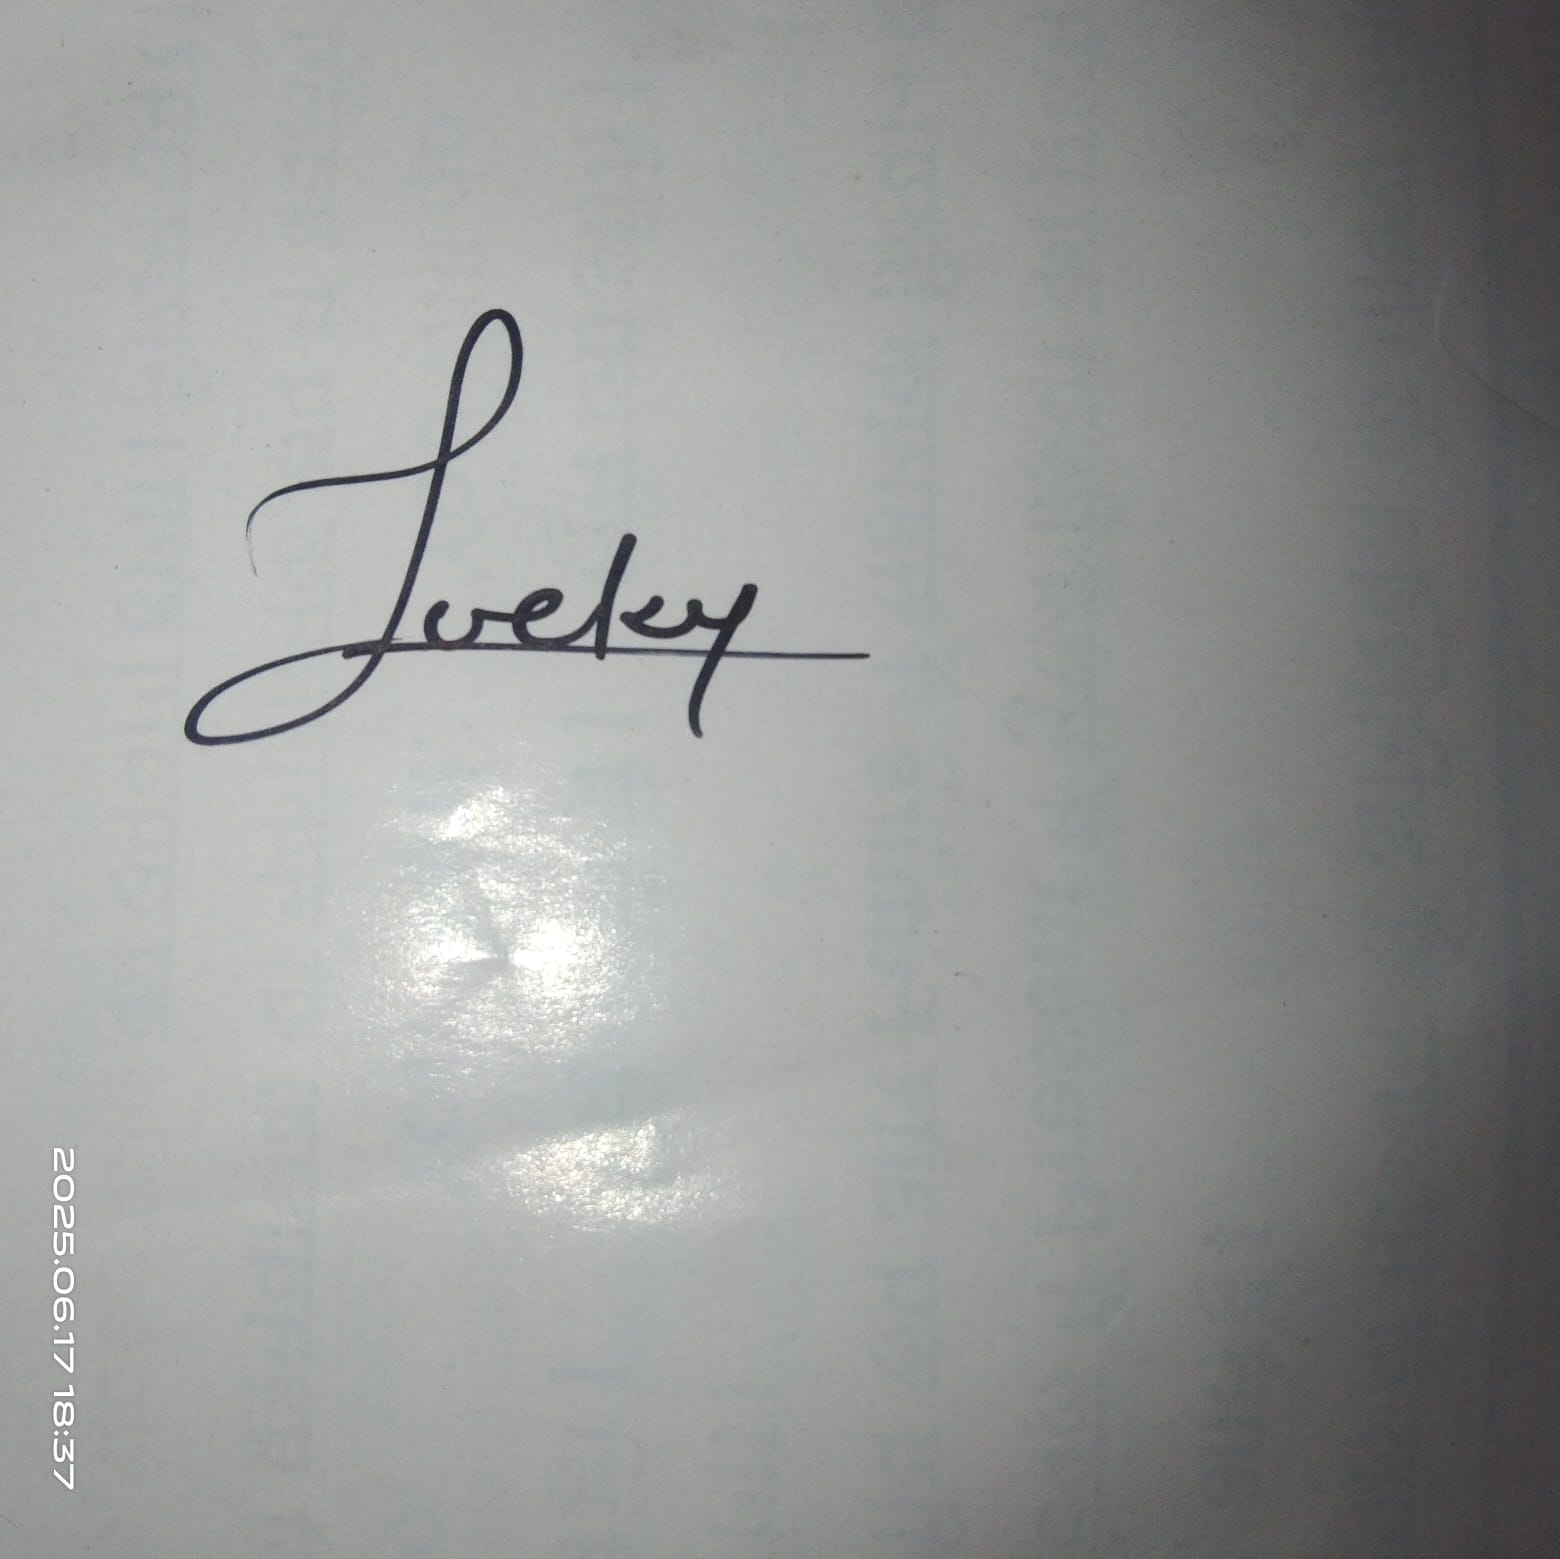 Lucky
2025.06.17 18:37